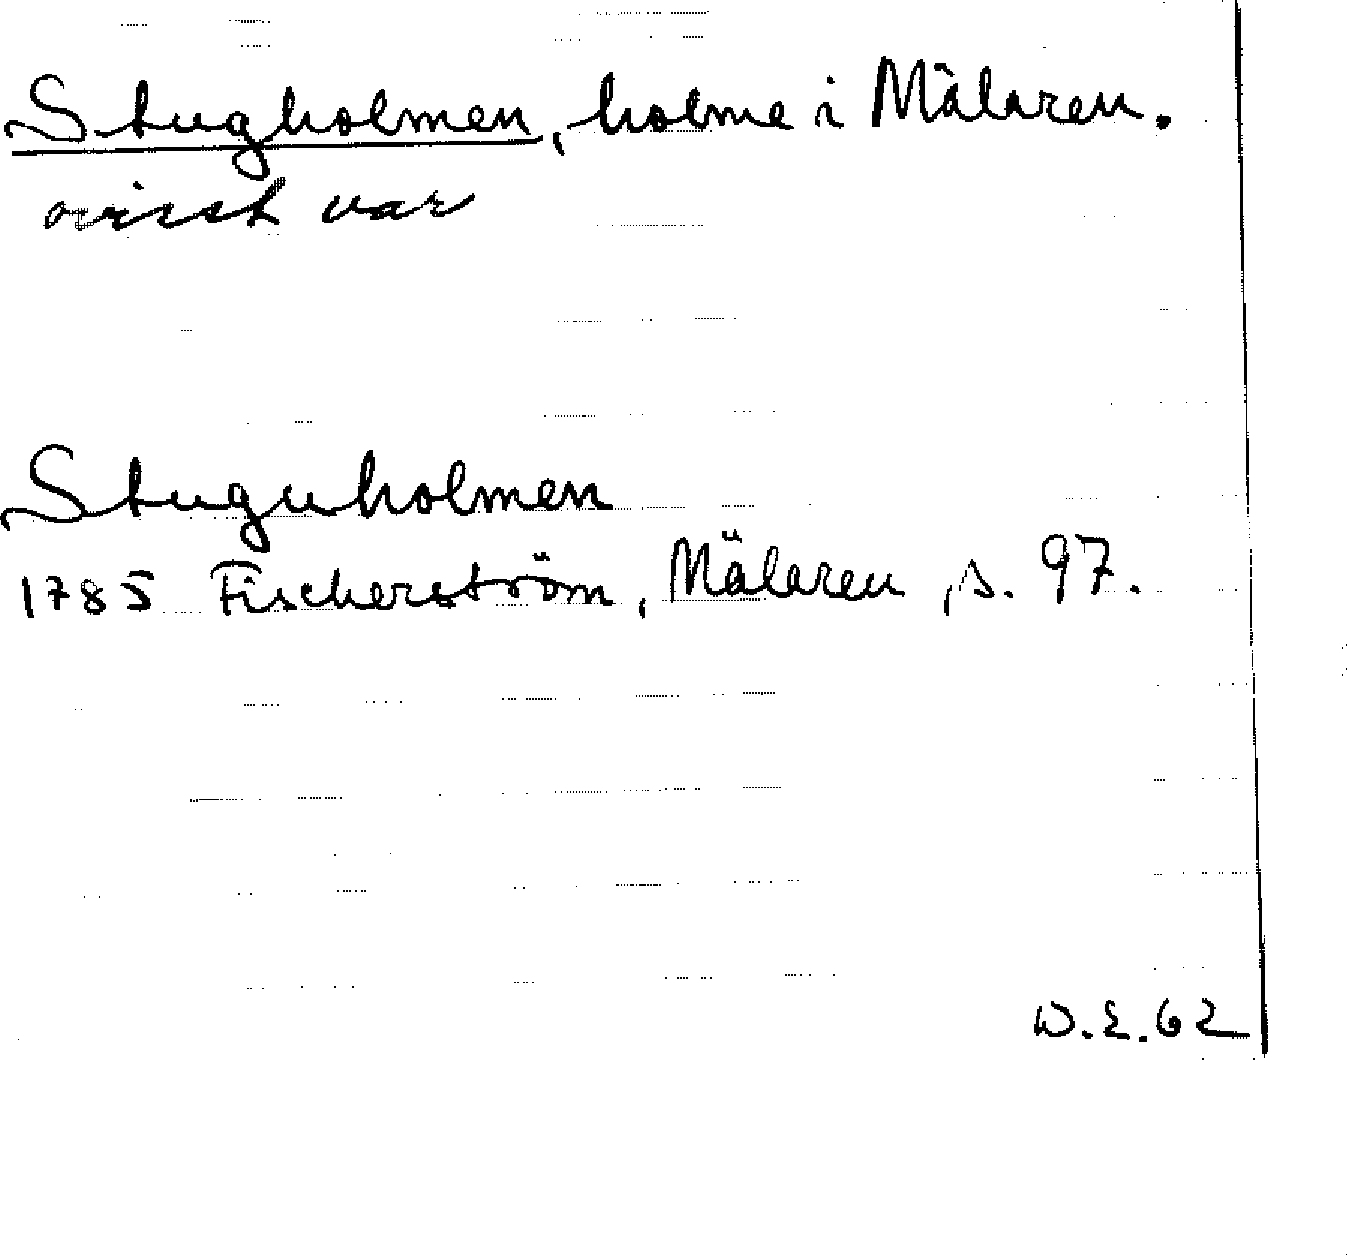 Stugholmen, holme i Mälaren.
ovisst var
Stuguholmen
1785 Fischerström, Mälaren, s. 97.
D.E.62